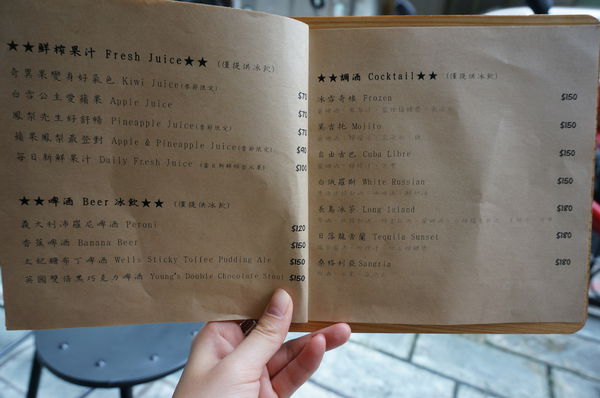 ★★鮮榨果汁 Fresh Juice★★ (僅提供冰飲)
奇異果變身好氣色 Kiwi Juice(季節限定) $70
白雪公主愛蘋果 Apple Juice $70
鳳梨先生好舒暢 Pineapple Juice(季節限定) $70
蘋果鳳梨最登對 Apple & Pineapple Juice(季節限定) $90
每日新鮮果汁 Daily Fresh Juice (當日新鮮綜合水果) $100
★★啤酒 Beer 冰飲★★ (僅提供冰飲)
義大利沛羅尼啤酒 Peroni $120
香蕉啤酒 Banana Beer $150
太妃糖布丁啤酒 Wells Sticky Toffee Pudding Ale $150
英國雙倍黑巧克力啤酒 Young's Double Chocolate Stout $150
★★調酒 Cocktail★★ (僅提供冰飲)
冰雪奇緣 Frozen $150
莫吉托 Mojito $150
自由古巴 Cuba Libre $150
白俄羅斯 White Russian $150
長島冰茶 Long Island $180
日落龍舌蘭 Tequila Sunset $180
桑格利亞 Sangria $180